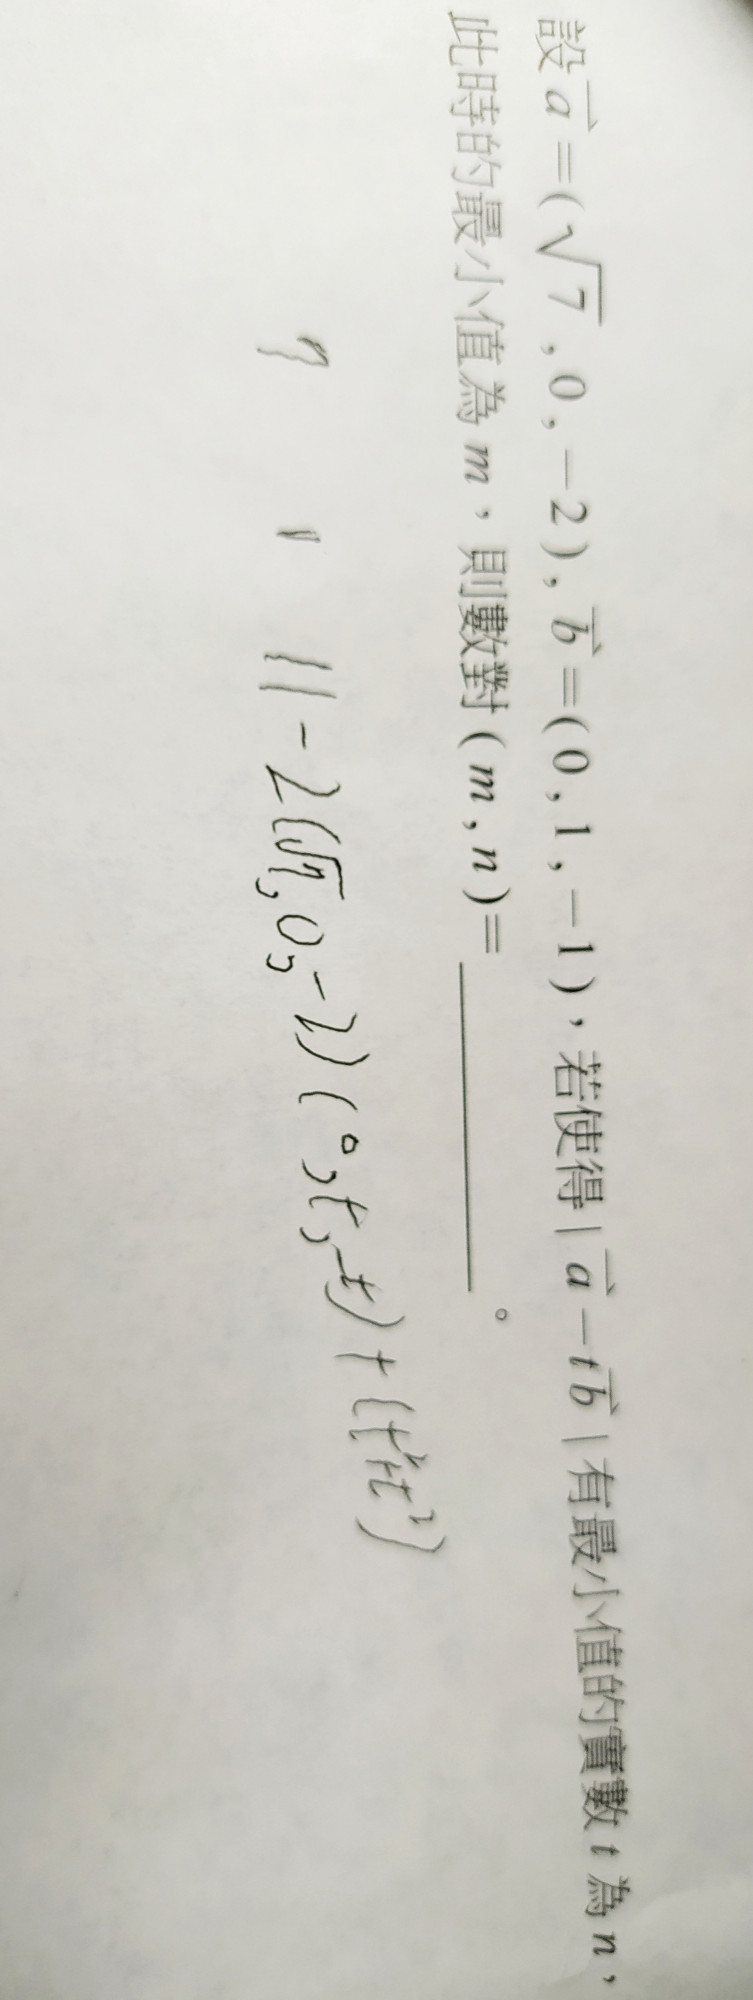 設 $\vec{a}=(\sqrt{7},0,-2),\vec{b}=(0,1,-1)$，若使得 $|\vec{a}-t\vec{b}|$ 有最小值的實數 t 為 n，
此時的最小值為 m，則數對 (m,n)=＿＿＿＿＿＿。
11-2(√7,0,-2)(0,t,-t)+(t²+t²)